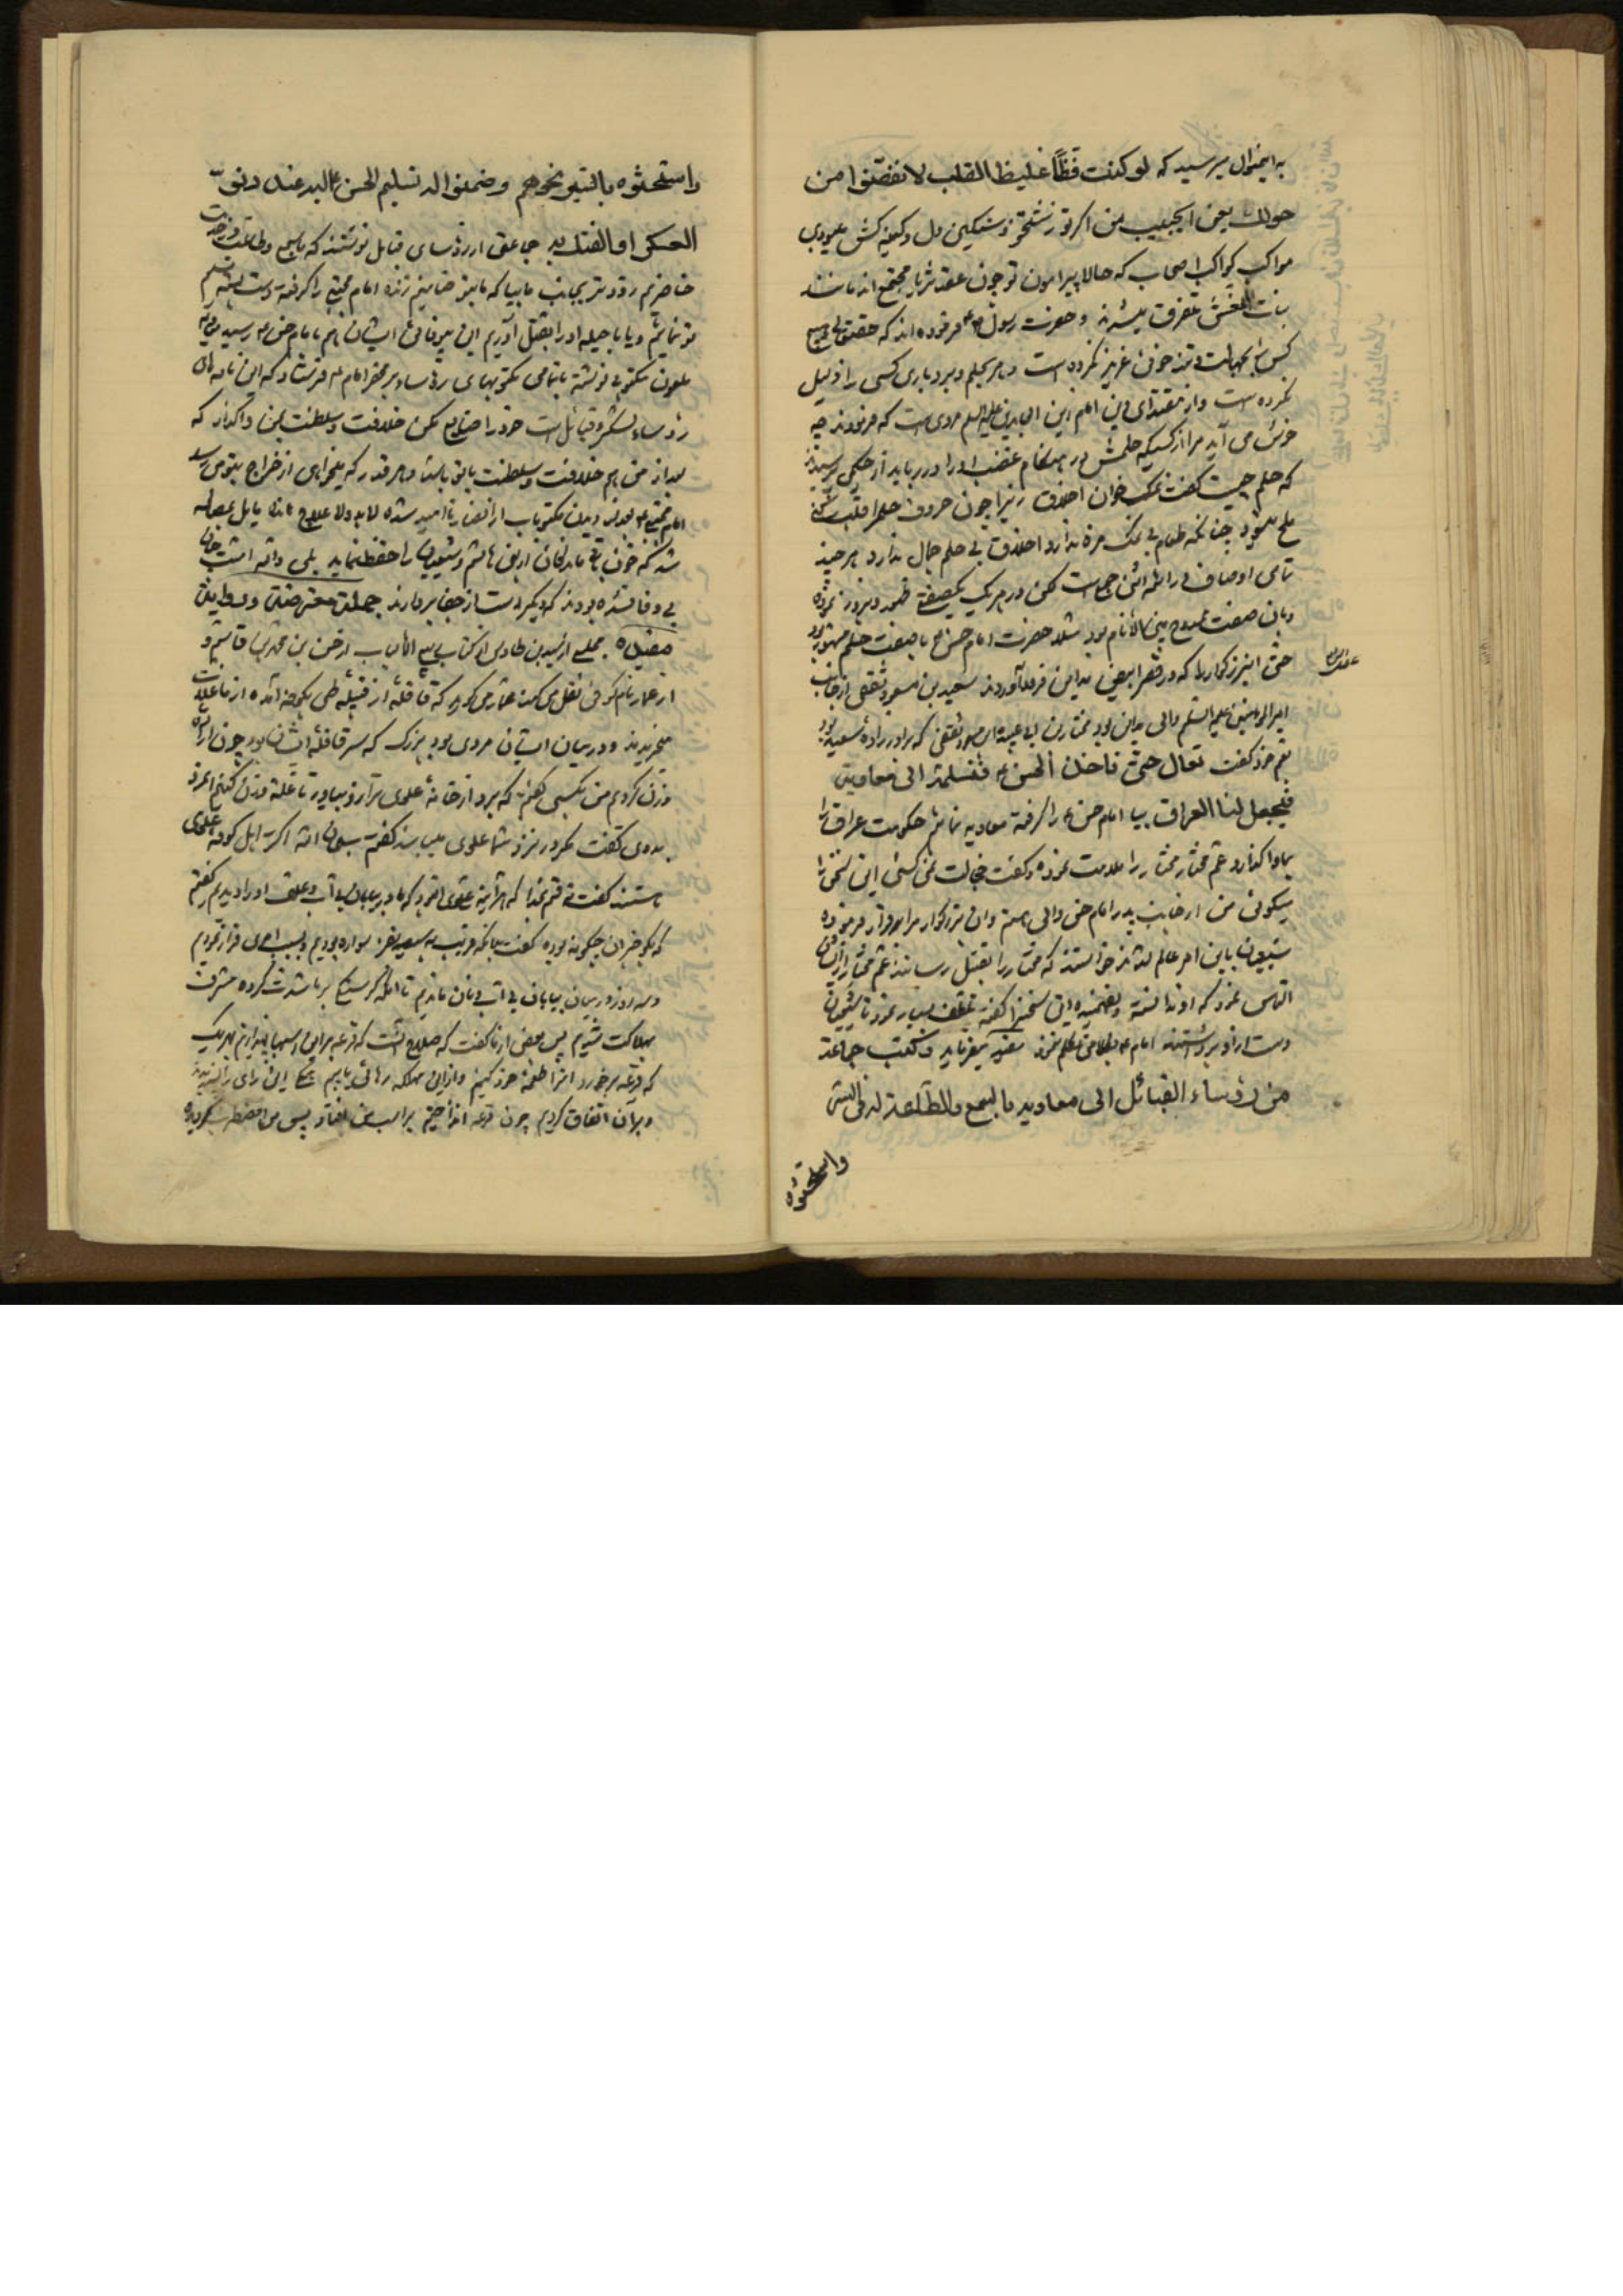 به اینمنوال میرسید که لو کنت فظّاً غلیظ القلب لانفضّوا من
حولک یعنی ایحبیب من اگر تو زشتخو و سنگین دل و کینه کش میبودی
مواکب کواکب اصحاب که حالا پیرامون تو چون عقد ثریا مجتمع اند مانند
بنات النعش متفرق میشدند و حضرت رسول ص فرموده اند که حقتعالی هیچ
کس را بجهالت و تندخوئی عزیز نکرده است و هرگز بحلم و بردباری کسی را ذلیل
نکرده است و از مقتدای دین امام زین العابدین علیه السلم مرویست که فرمودند چه
خوش می آید مرا از کسیکه حلمش در هنگام غضب او را دریابد از حکیمی پرسیدند
که حلم چیست گفت نمک خوان اخلاق زیرا چون حروف حلم را قلب کنی
ملح میشود چنانکه طعام بی نمک مزه ندارد اخلاق بی حلم جمال ندارد هر چند
تمامی اوصاف در ائمه اثنی جمع است لکن در هر یک یکصفتی ظهور و بروز نموده
و بآن صفت ممدوح بین الانام بود مثلا حضرت امام حسن ع با صفت حلم مشهور بود
حتی اینرز کماربا که در قصر ابیض مداین فرود آوردند سعید بن مسعود ثقفی از جانب
عمش
امیر المومنین علیه السلم والی مداین بود مختار بن ابی عبیده بن مسعود ثقفی که برادرزاده سعید بود
بعم خود گفت تعال حتی ناخذ الحسن ع فنسلمه الی معاویة
فیجعل لنا العراق بیا امام حسن ع را گرفته بمعاویه نمائیم حکومت عراق را
بماواگذارد عم مختار مختار را ملامت نموده و گفت خجالت نمی کشی این سخن را
میگوئی من از جانب پدر امام حسن والی هستم و آن بزرگوار مرا سرافراز فرموده
شیعیان باین امر عالم شدند خواستند که مختار را بقتل رسانند عم مختار از ایشان
التماس نمود که او ندانسته و نفهمیده این سخنرا گفته تلطف بسیار نمود تا شیعیان
دست از او برداشتند امام ع
من رؤساء القبائل الی معاویه بالسمع والطاعة له فی السّر
واستحثوه
واستحثوه بالسّیر نحوهم وضمنوا له تسلیم الحسن ع الیه عند دنوّه
العسکر او الفتک به جماعتی از رؤسای قبایل نوشتند که باسمع و طاعت در خدمت
حاضریم زودتر بجانب ما بیا که ما نیز ضامنیم زنده امام مجتبی را گرفته دست بسته تسلیم
تو نمائیم و یا با حیله او را بقتل آوریم این بیوفائی ایشان هم بامام حسن ع رسید معاویه
ملعون مکتوبی نوشته با تمامی مکتوبهای رؤساء بر محضر امام ع فرستاد که این نامه های
رؤساء لشکر و قبائل است خود را ضایع مکن خلافت و سلطنت بمن واگذار که
بعد از من هم خلافت و سلطنت با تو باشد و هر قدر که میخواهی از خراج بتو میرسد
امام مجتبی ع بعد از دیدن مکتوبات از انصار ناامید شده لابد و لاعلاج مانده مایل بمصالحه
شد که خون باقی ماندگان از بنی هاشم و شیعیان را حفظ نماید بلی والله امت
بی وفا نشده بودند که دیگر دست از جفا بردارند جملة معترضة و روایة
مفیدة مجلسی از سید بن طاوس در کتاب از حسن بن محمد بن قاسم و
از عمار نام کوفی نقل می کند عمار می گوید که قافله از قبیله طی بکوفه آمده از ما غلات
میخریدند و در میان ایشان مردی بود بزرگ که سر قافله ایشان بود چون اراده
وزن کردیم من بکسی گفتم که برو از خانه علوی ترازو بیاور تا غله وزن کنیم آنمرد
بدوی گفت مگر در نزد شما علوی میباشد گفتم سبحان الله اکثر اهل کوفه علوی
هستند گفت قسم بخدا که هر آینه علوی آنمرد بود که ما در بیابان بی آب و علف او را دیدیم گفتم
که بگو خبر آن چگونه بوده گفت بدانکه قریب به سیصد نفر سواره بودیم و بسبب امری فرار نمودیم
و سه روز در میان بیابان بی آب و نان ماندیم تا آنکه گرسنگی بر ما شدت کرده مشرف
بهلاکت شدیم پس بعضی از ما گفت که صلاح آنست که قرعه بر این اسبها بیندازیم بهر یک
که قرعه برخورد آنرا طعمه خود کنیم و از این مهلکه رهائی یابیم همگی این رای را پسندیدند
و بر آن اتفاق کردیم چون قرعه انداختیم بر اسب من افتاد پس من مضطرب گردیده